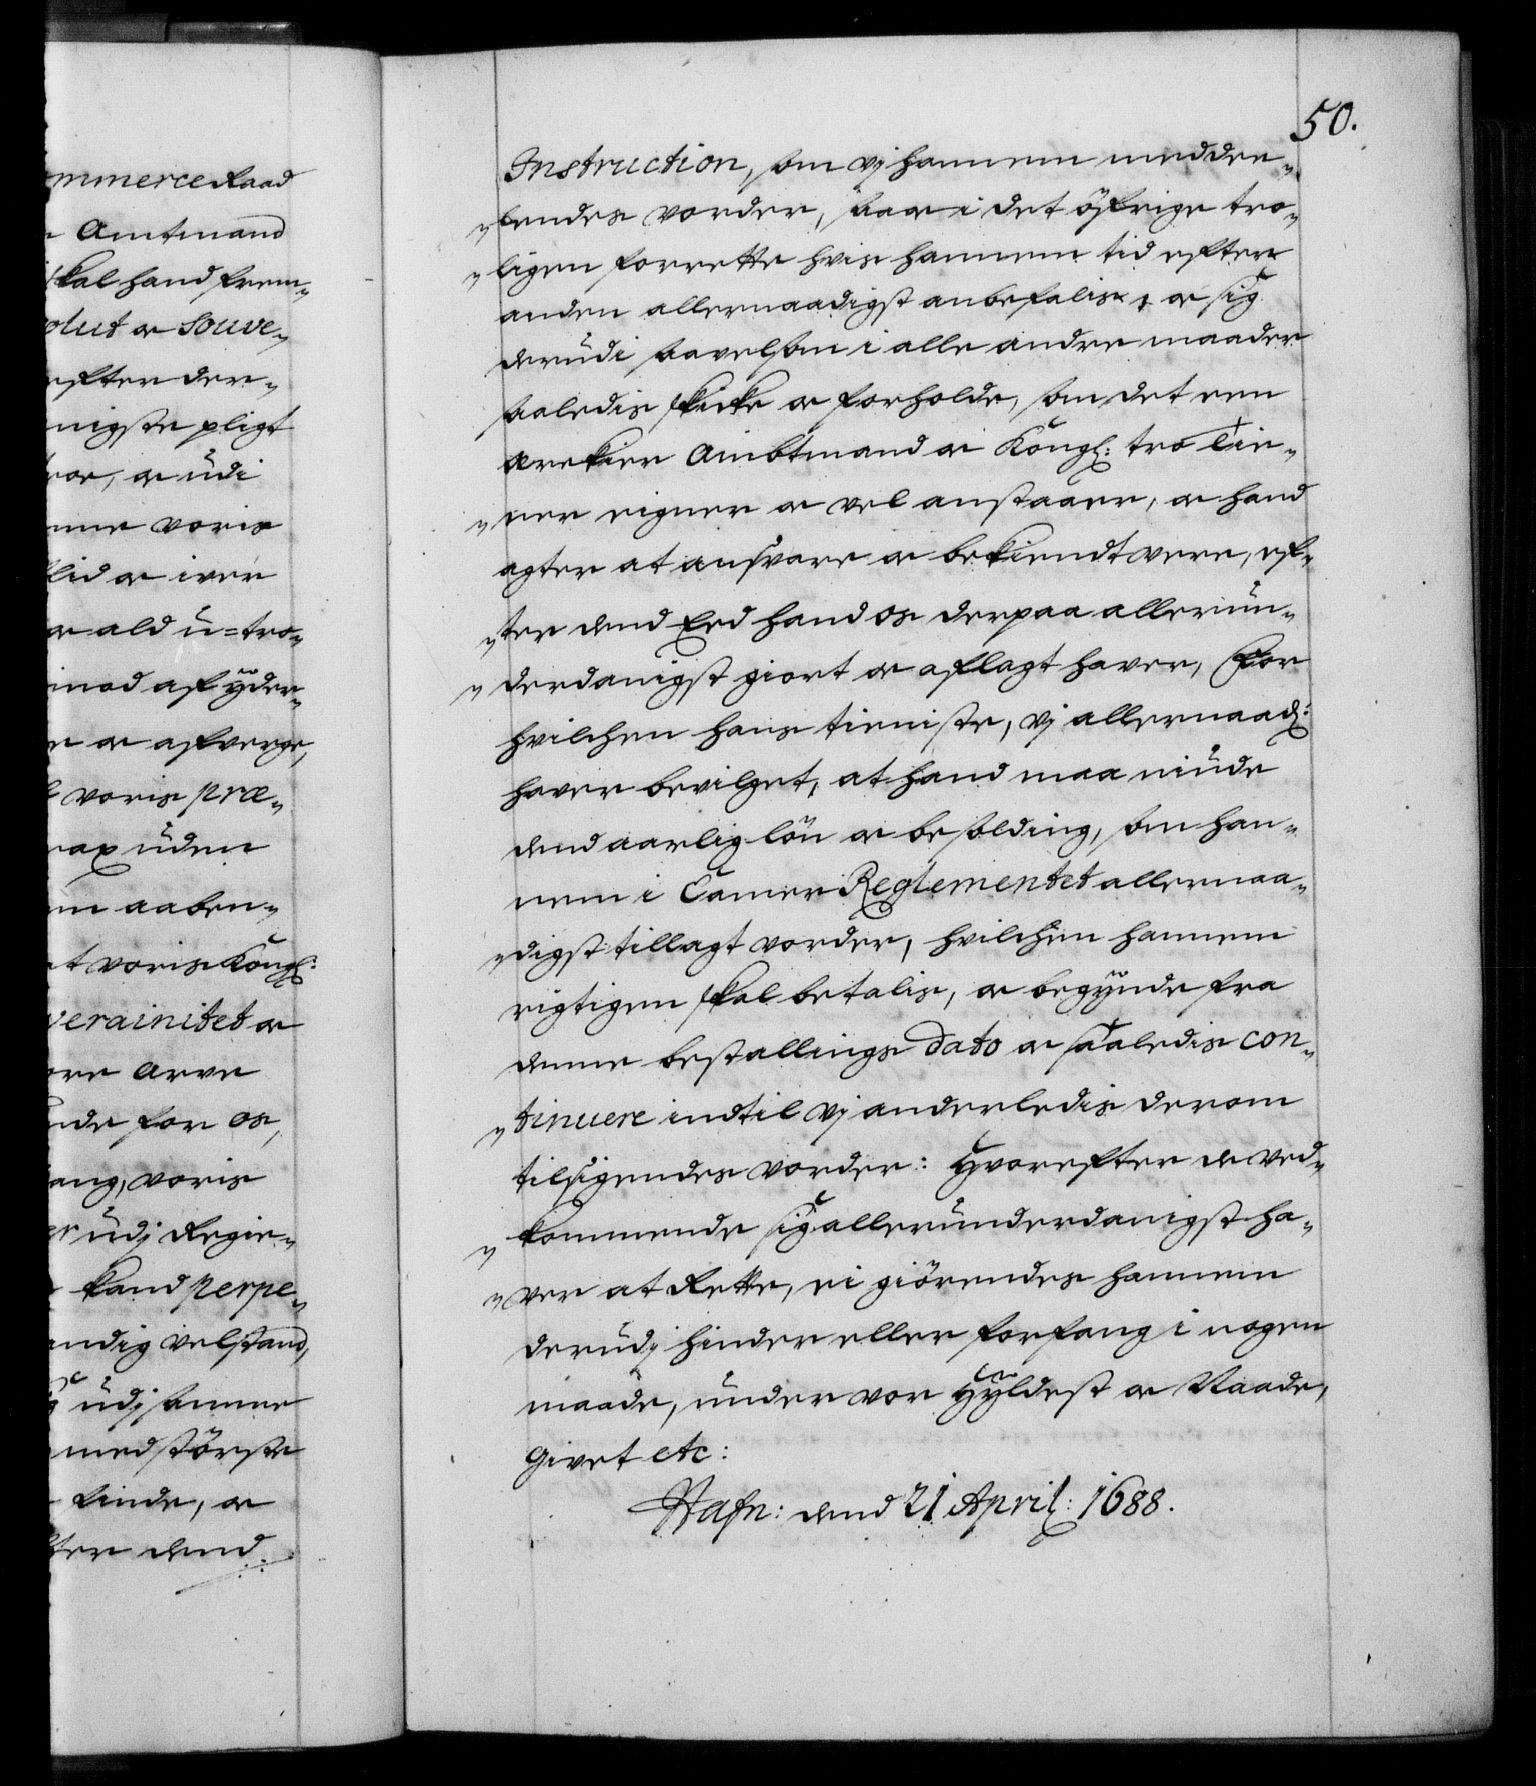 50.
mmerce Raad
Amtmand
skal hand frem„
olut oc Souve„
efter der„
nigste pligt
roe, oc udi
nne voris
lid oc iver
oc ald u=tro„
mod af yder„
e oc afverge,
voris præ„
rax uden
em aaben„
at voris Kongl:
verainitet oc
vre Arve
nde for os,
ang, voris
udj Regie„
kand perpe„
andig velstand,
udj samme
med störste
finde, oc
fter dend
Instruction, som vj hannem meddee„
„lendes vorder, saa oc i det öfrige tro„
„ligen forrette hvis hannem tid efter
anden allernaadigst anbefalis, oc sig
derudi saavelsom i alle andre maader
saaledis skicke oc forholde, som det een
ærekier Ambtmand oc Kongl: tro Tie„
„ner eigner oc vel anstaaer, oc hand
agter at ansvare oc bekiendt vere, ef„
„ter dend Eed hand os derpaa allerun„
„derdanigst giort oc aflagt haver, For
hvilchen hans tieniste, vj allernaad:
haver bevilget, at hand maa niude
dend aarlig lön oc besolding, som han„
nem i Camer Reglementet allernaa„
„digst tillagt vorder, hvilchen hannem
rigtigen skal betalis, oc begynde fra
denne bestallings Dato oc saaledis con„
„tinuere indtil vj anderledis derom
tilsigendes vorder: Hvorefter de ved„
„kommende sig allerunderdanigst ha„
„ver at Rette, ei giörendes hannem
derudj hinder eller forfang i nogen
maade, under vor Hyldest oc Naade,
Givet etc:
Hafn: dend 21 April: 1688.